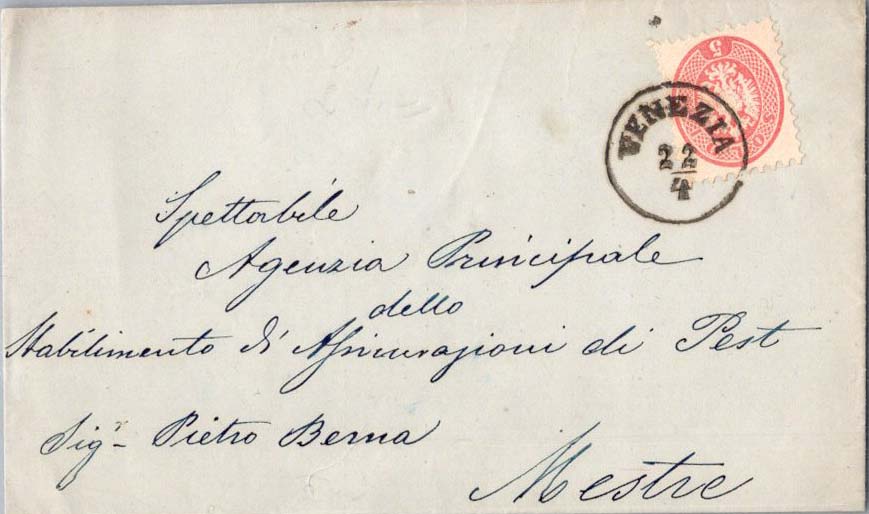 5
SOLDI
VENEZIA
22
4
Spettabile
Agenzia Principale
dello
Stabilimento d'Assicurazioni di Pest
Sigr Pietro Berna
Mestre